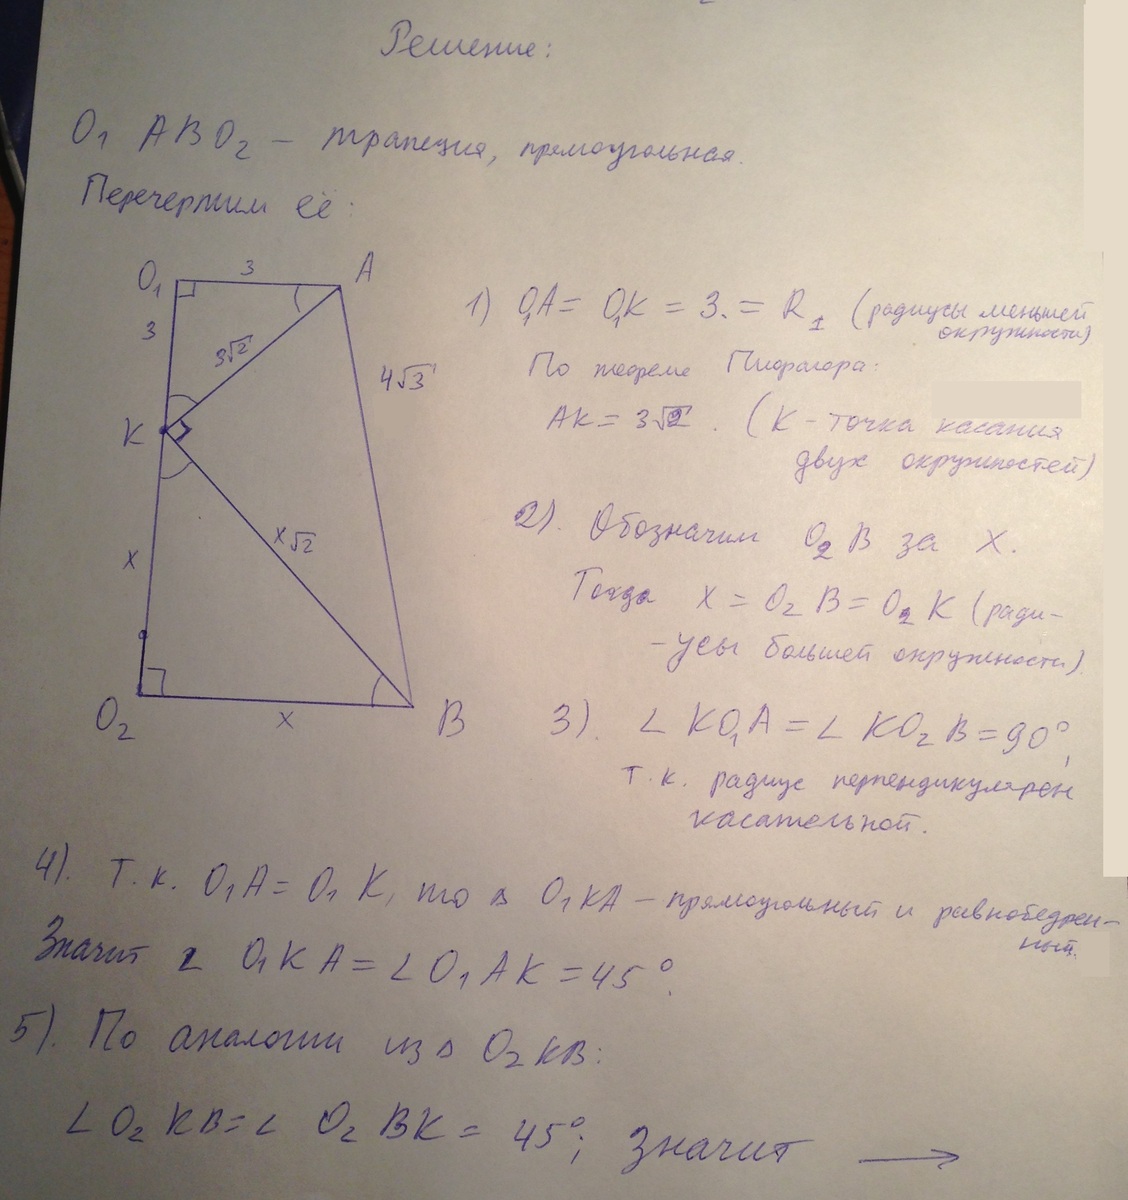 Решение:
O₁ A B O₂ – трапеция, прямоугольная.
Перечертим её:
O₁ 3 A
3
3√2
4√3
K
x√2
x
O₂ x B
1) O₁A = O₁K = 3. = R₁ (радиусы меньшей
окружности)
По теореме Пифагора:
AK = 3√2. (K - точка касания
двух окружностей)
2). Обозначим O₂B за X.
Тогда X = O₂B = O₂K (ради-
-усы большей окружности)
3). ∠ KO₁A = ∠ KO₂B = 90°,
т.к. радиус перпендикулярен
касательной.
4). Т.к. O₁A = O₁K, то ∆ O₁KA – прямоугольный и равнобедрен-
ный.
Значит ∠ O₁KA = ∠ O₁AK = 45°.
5). По аналогии из ∆ O₂KB:
∠ O₂KB = ∠ O₂BK = 45°; Значит →